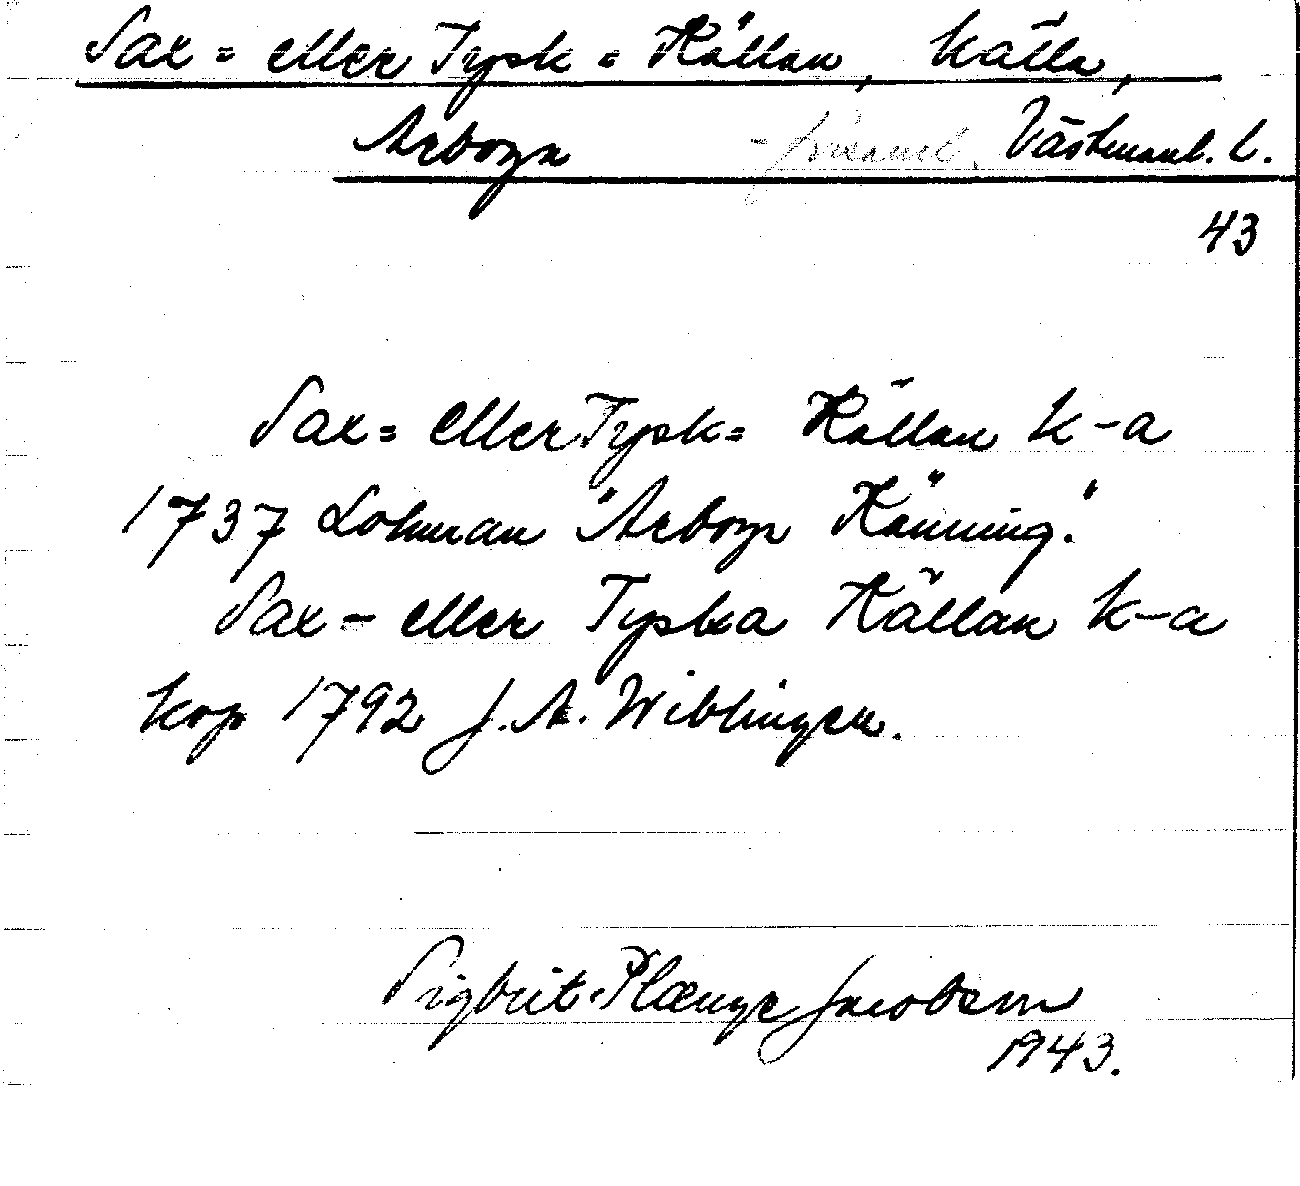 Sax= eller Tysk= Källan, källa,
Arboga Västmanl. l.
43
Sax= eller Tysk= Källan k-a
1737 Lohman "Arboga Känning."
Sax- eller Tyska Källan k-a
kop 1792 J. A. Wiblingen.
Sigbrit Plænge Jacobson
1943.